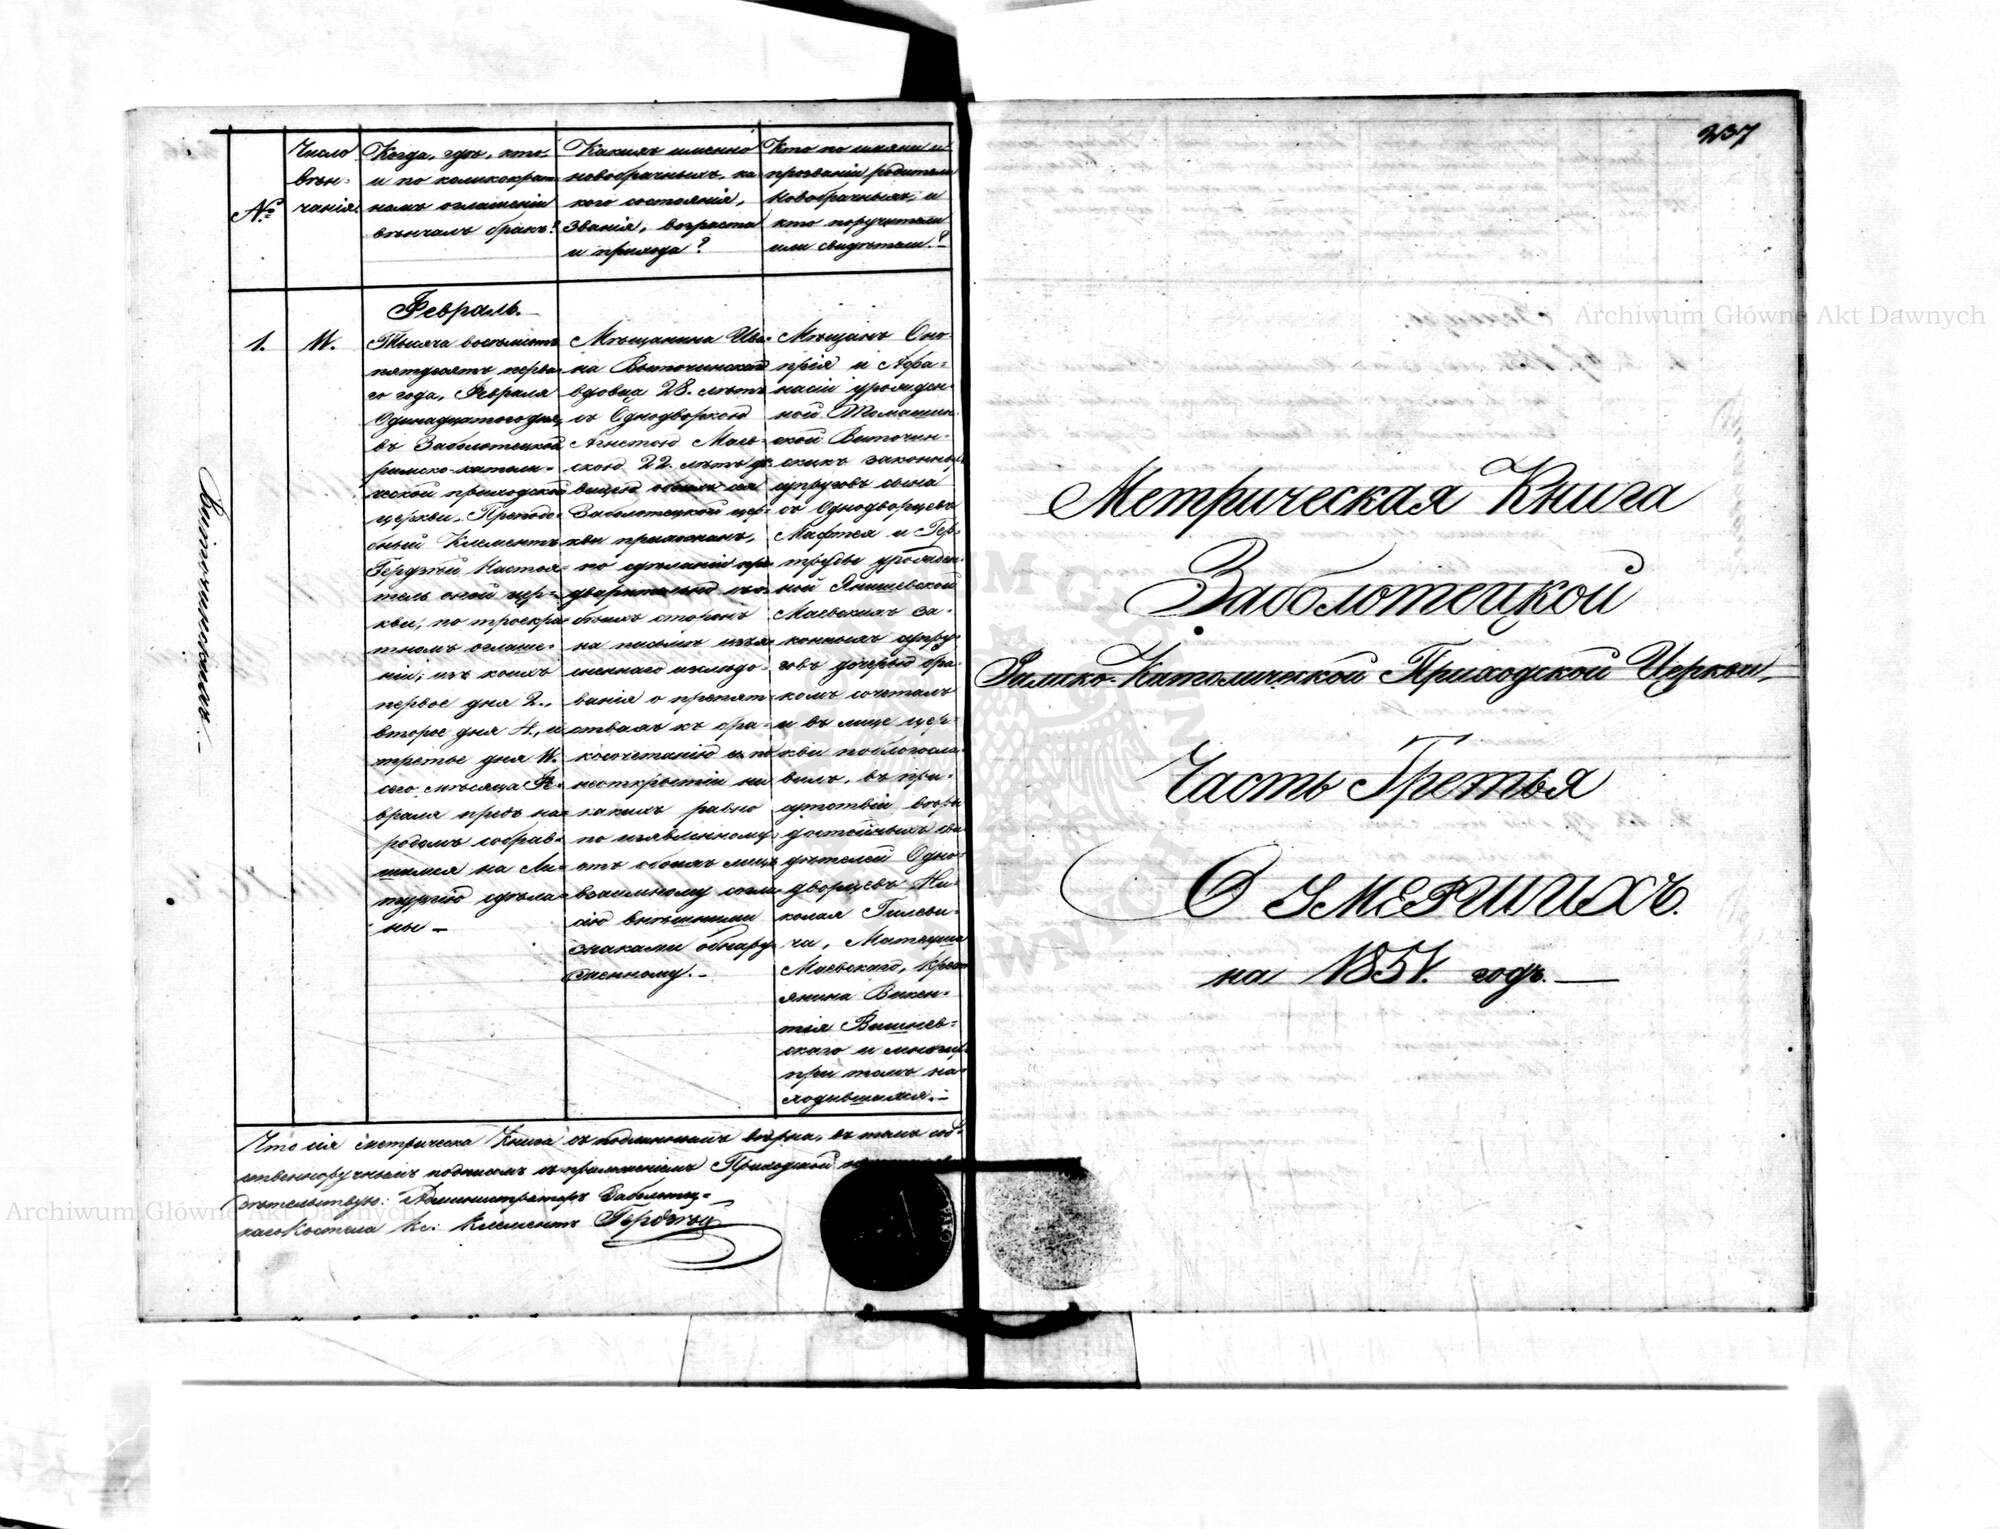 №
Число
вѣн-
чанія.
Когда, гдѣ, кто,
и по коликократ-
номъ оглашеніи
вѣнчалъ бракъ?
Какихъ именно
новобрачныхъ, ка-
кого состоянія,
званія, возраста
и прихода?
Кто по имяни и
прозванію родители
новобрачныхъ, и
кто поручители
или свидѣтели?
Виточинскихъ.
1.
11.
Февраль.
Тысяча восемьсотъ
пятдесятъ перва-
го года, Февраля
Одинадцатого дня,
въ Заблотецкой
римско-католи-
ческой приходской
церкви. Преподо-
бный Климентъ
Гердзѣй Настоя-
тель оной цер-
кви, по троекра-
тномъ оглаше-
ніи, изъ коихъ
первое дня 2.,
второе дня 4., и
третье дня 11.
сего мѣсяца Фе-
враля предъ на-
родомъ собрав-
шимся на Ли-
тургію сдѣла-
ны —
Мѣщанина Ива-
на Виточинскаго
вдовца 28. лѣтъ
съ Однодворкою
Агнетою Маев-
скою 22. лѣтъ дѣ-
вицею обоихъ сея
Заблотецкой цер-
кви прихожанъ,
по сдѣланіи пре-
дварительно съ о-
боихъ сторонъ
на письмѣ изъя-
сненнаго изслѣдо-
ванія о препят-
ствіяхъ къ бра-
косочетанію и по
неоткрытіи ни
какихъ равно
по изявленному
отъ обоихъ лицъ
взаимному согла-
сію внѣшними
знаками обнару-
женному. —
Мѣщанъ Оно-
прія и Афа-
насіи урожден-
ной Томашин-
ской Виточин-
скихъ законныхъ
супруговъ сына
съ Однодворцевъ
Мафтея и Гер-
труды урожден-
ной Янишевской
Маевскихъ за-
конныхъ супру-
говъ дочерью бра-
комъ сочеталъ
и въ лице цер-
кви поблагосла-
вилъ, въ при-
сутствіи вѣры
достойныхъ сви-
дѣтелей Одно-
дворцевъ Ни-
колая Гилеви-
ча, Матвуша
Маевскаго, крест-
янина Викен-
тія Вишнев-
скаго и многихъ
при томъ на-
ходившихся. —
Что сія метрическа Книга съ подлинникомъ вѣрна, въ томъ соб-
ственноручнымъ подписомъ съ приложеніемъ Приходской
дѣтельствую: Администраторъ Заблотец-
каго Костела Кс: Климентъ Гердзѣй
237
Метрическая Книга
Заблотецкой
Римско-Католической Приходской Церкви,
Часть Третья
О УМЕРШИХЪ.
на 1851. годъ. —
Archiwum Główne Akt Dawnych
Archiwum Główne Akt Dawnych